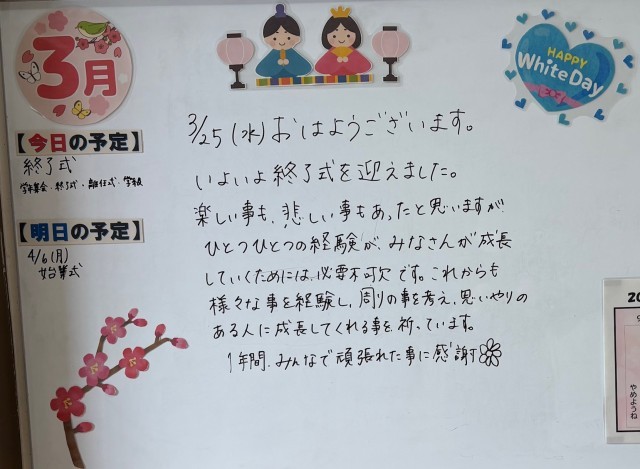 3月
HAPPY
White Day
3/25(水)おはようございます。
【今日の予定】
終了式
学年集会・終了式・離任式・学級
いよいよ終了式を迎えました。
楽しい事も、悲しい事もあったと思いますが
ひとつひとつの経験が、みなさんが成長
していくためには、必要不可欠です。これからも
様々な事を経験し、周りの事を考え、思いやりの
ある人に成長してくれる事を祈っています。
1年間、みんなで頑張れた事に感謝
【明日の予定】
4/6(月)
始業式
20
やめようね